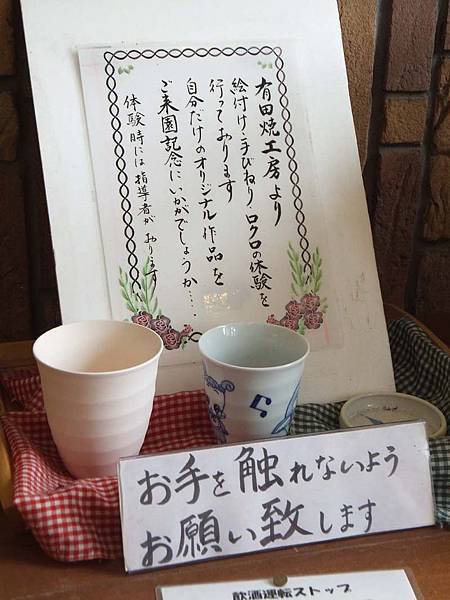 有田焼工房より
絵付け・手びねり ロクロの体験を
行っております
自分だけのオリジナル作品を
ご来園記念にいかがでしょうか‥‥
体験時には指導者がおります
お手を触れないよう
お願い致します
飲酒運転ストップ